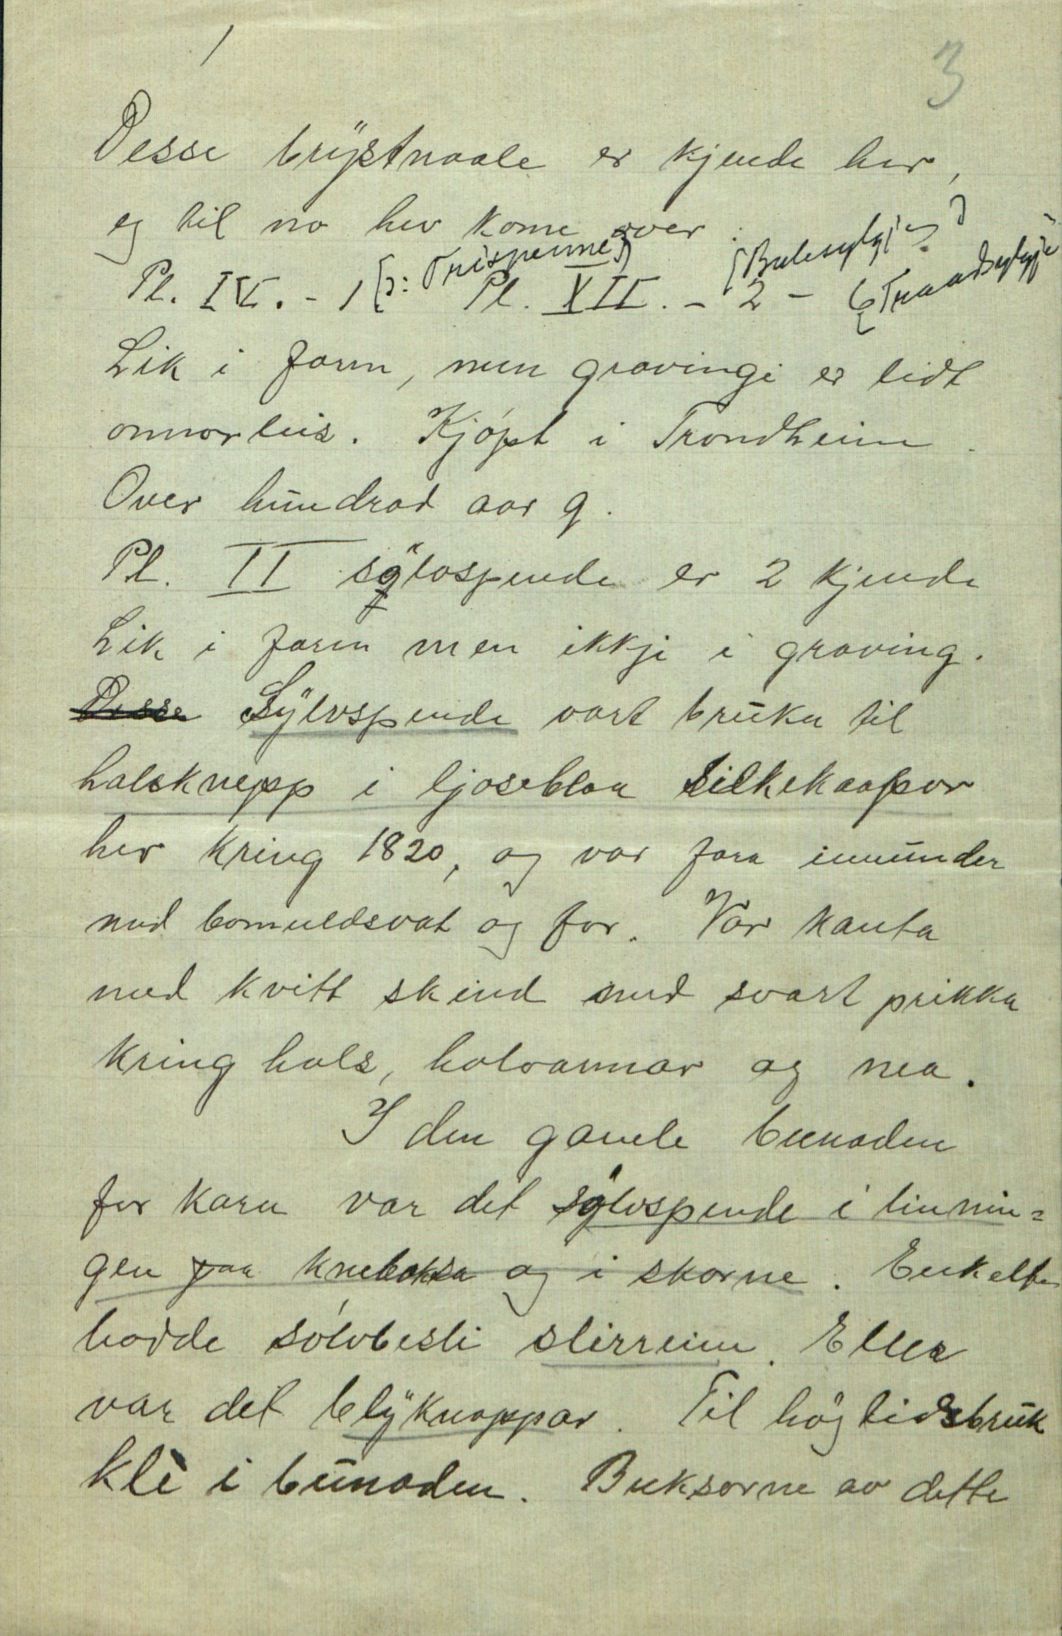 1
3
Desse brystnaale er kjende her,
eg til no hev kome over.
[ɔ: Trispenne] [Bulesylgje?]
Pl. IV. - 1 Pl. XII. - 2 - 6 [Traadsylgje
Lik i form, men gravingi er lidt
onnorleis. Kjøpt i Trondheim.
Over hundrad aar g.
Pl. II sølvspende er 2 kjende
Lik i form men ikkje i graving.
Desse Sylvspende vart bruka til
halsknepp i ljoseblaa silkekaapor
her kring 1820, og var fora innunder
med bomuldsvat og for. Var kanta
med kvitt skind med svart prikka
kring hals, holvarmar og nea.
I den gamle bunaden
for kara var det sølvspende i linnin=
gen paa kneboksa og i skorne. Enkelte
hadde sølvbesli slirreim. Elles
var det blyknappar. Til høgtidsbruk
klè i bunaden. Buksorne av dette